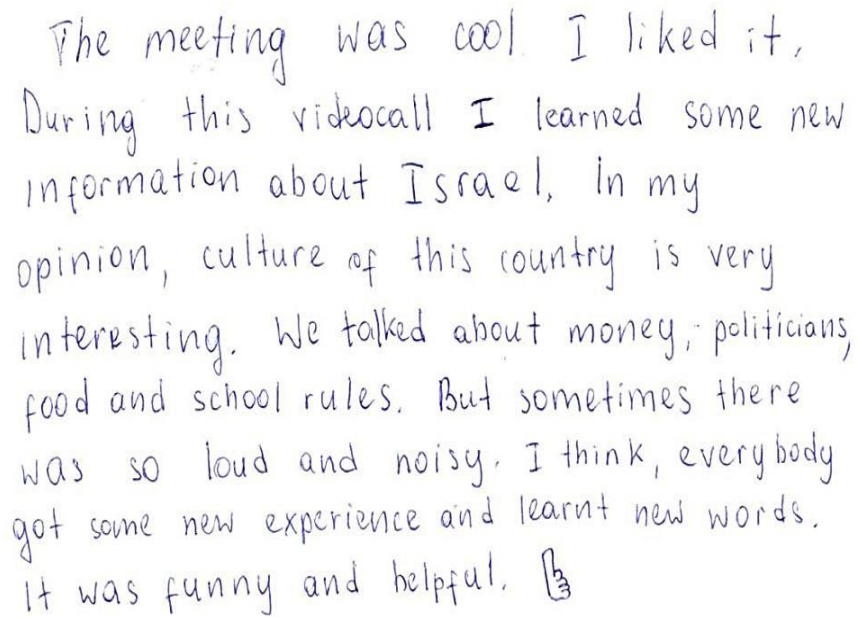 The meeting was cool I liked it.
During this videocall I learned some new
information about Israel. In my
opinion, culture of this country is very
interesting. We talked about money, politicians,
food and school rules. But sometimes there
was so loud and noisy. I think, everybody
got some new experience and learnt new words.
It was funny and helpful.